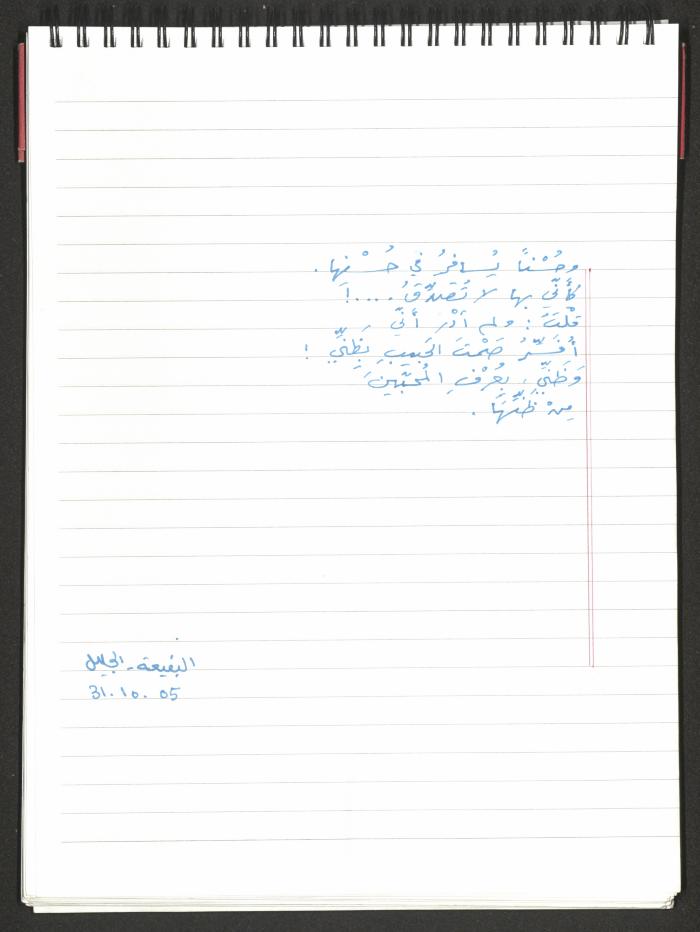 وحُسْناً يُسافرُ في حُسْنِها .
كأَنِّي بها لا تُصَدِّقُ ....!
قُلْتُ : ولم أَدْرِ أَنِّي
أُفَسِّرُ صَمْتَ الحَبيبِ بِظَنِّي !
وَظَنِّي ، بِعُرْفِ المُحبِّينَ
مِنْ ظَنِّهَا .
البقيعة - الجليل
31.10.05